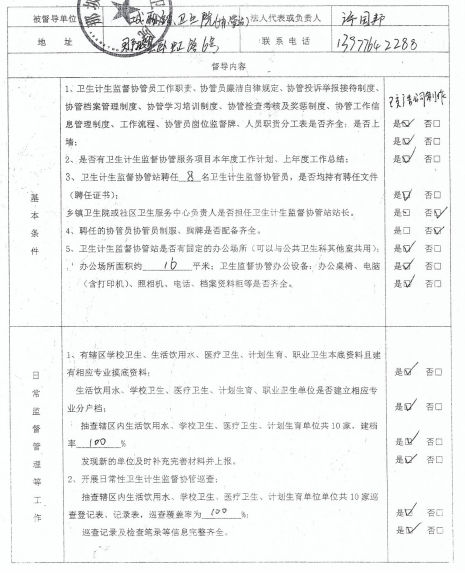 被督导单位 卫生院(协管站) 法人代表或负责人 许国邦
地 址 虹路6号 联系电话 13977642288
督导内容
基本条件
1、卫生计生监督协管员工作职责、协管员廉洁自律规定、协管投诉举报接待制度、
协管档案管理制度、协管学习培训制度、协管检查考核及奖惩制度、协管工作信 是☑ 否□
息管理制度、工作流程、协管员岗位监督牌、人员职责分工表是否齐全；是否上 是☑ 否□
墙； 是☑ 否□
2、是否有卫生计生监督协管服务项目本年度工作计划、上年度工作总结； 是☑ 否□
3、卫生计生监督协管站聘任 8 名卫生计生监督协管员，是否均持有聘任文件
（聘任证书）； 是☑ 否□
乡镇卫生院或社区卫生服务中心负责人是否担任卫生计生监督协管站站长。 是□ 否☑
4、聘任的协管员协管员制服、胸牌是否配备齐全。 是□ 否☑
5、卫生计生监督协管站是否有固定的办公场所（可以与公共卫生科其他室共用）； 是☑ 否□
办公场所面积约 16 平米；卫生监督协管办公设备：办公桌椅、电脑 是☑ 否□
（含打印机）、照相机、电话、档案资料柜等是否齐全。 是☑ 否□
日常监督管理等工作
1、有辖区学校卫生、生活饮用水、医疗卫生、计划生育、职业卫生本底资料且建
有相应专业摸底资料； 是☑ 否□
生活饮用水、学校卫生、医疗卫生、计划生育、职业卫生单位是否建立相应专
业分户档； 是☑ 否□
抽查辖区内生活饮用水、学校卫生、医疗卫生、计划生育单位共10家，建档
率 100 % 是☑ 否□
发现新的单位及时补充完善材料并上报。 是☑ 否□
2、开展日常性卫生计生监督协管巡查；
抽查辖区内生活饮用水、学校卫生、医疗卫生、计划生育单位单位共10家巡
查登记表、记录表，巡查覆盖率为 100 %； 是☑ 否□
巡查记录及检查笔录等信息完整齐全。 是☑ 否□